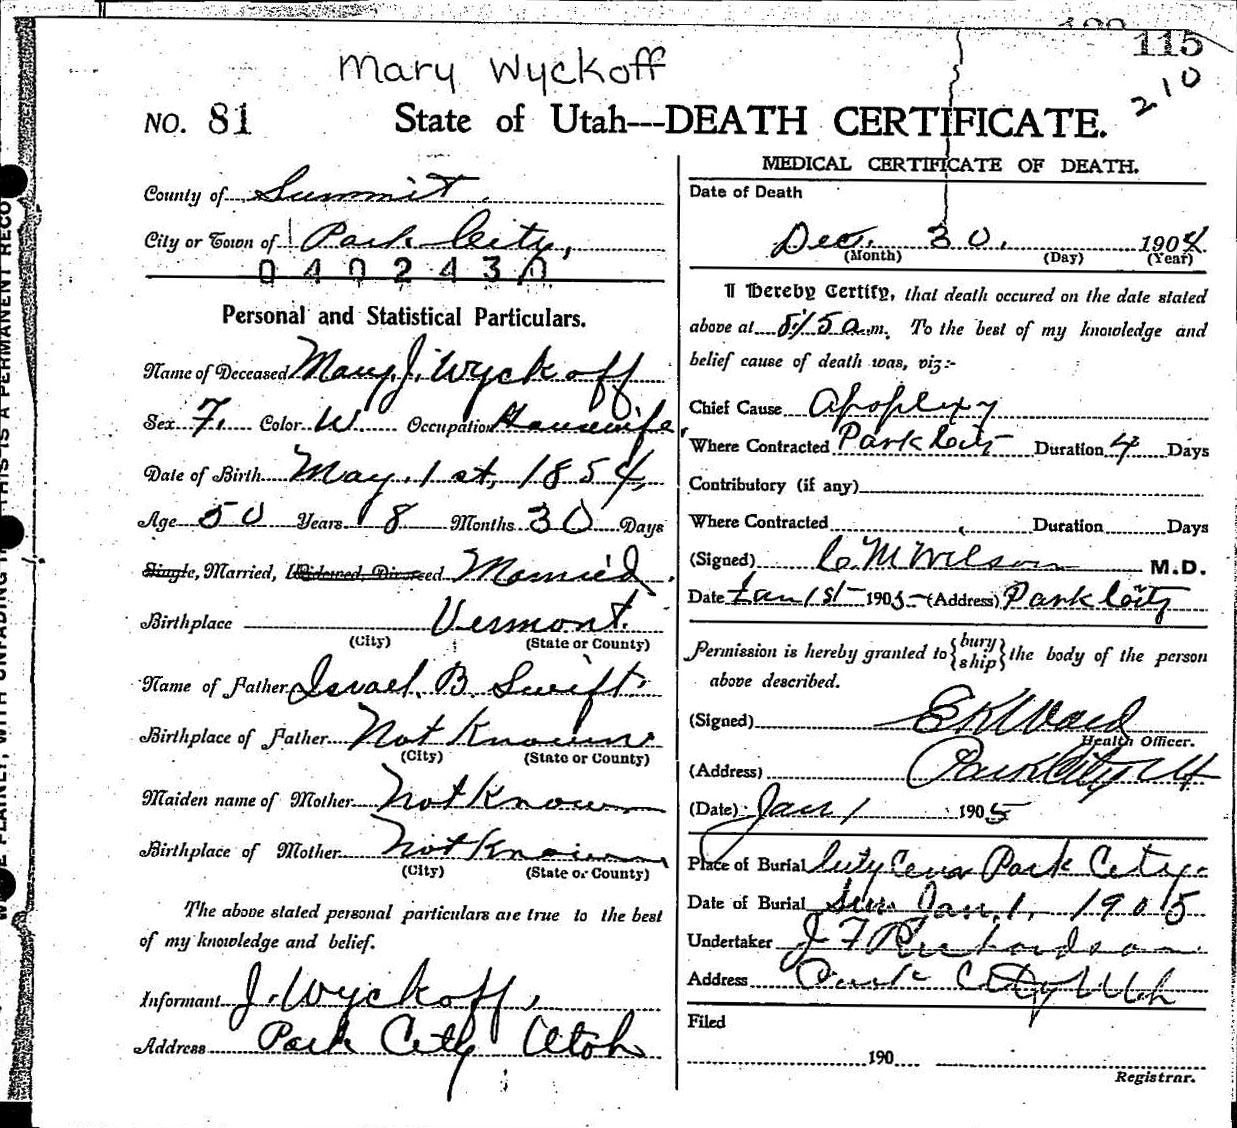 115
210
Mary Wyckoff
NO. 81 State of Utah---DEATH CERTIFICATE.
County of Summit.
City or Town of Park City,
0402430
Personal and Statistical Particulars.
Name of Deceased Mary. J. Wyckoff
Sex F. Color W Occupation Housewife,
Date of Birth May. 1st, 1854,
Age 50 Years 8 Months 30 Days
Single, Married, Widowed, Divorced. Married.
Birthplace Vermont.
(City) (State or County)
Name of Father Israel. B. Swift.
Birthplace of Father Not Known
(City) (State or County)
Maiden name of Mother Not Known
Birthplace of Mother Not Known
(City) (State or County)
The above stated personal particulars are true to the best
of my knowledge and belief.
Informant J. Wyckoff,
Address Park City Utah
MEDICAL CERTIFICATE OF DEATH.
Date of Death
Dec. 30. 1904
(Month) (Day) (Year)
I Hereby Certify, that death occured on the date stated
above at 5:15 a.m. To the best of my knowledge and
belief cause of death was, viz:-
Chief Cause Apoplexy
Where Contracted Park City Duration 4 Days
Contributory (if any)
Where Contracted Duration Days
(Signed) C. M. Wilson M.D.
Date Jan 1st 1905 (Address) Park City
Permission is hereby granted to {bury
ship} the body of the person
above described.
(Signed) E K Ward
Health Officer.
(Address) Park City Ut
(Date) Jan 1 1905
Place of Burial City Cem Park City.
Date of Burial Sun. Jan. 1, 1905
Undertaker J F Richardson
Address Park City Utah
Filed
190
Registrar.